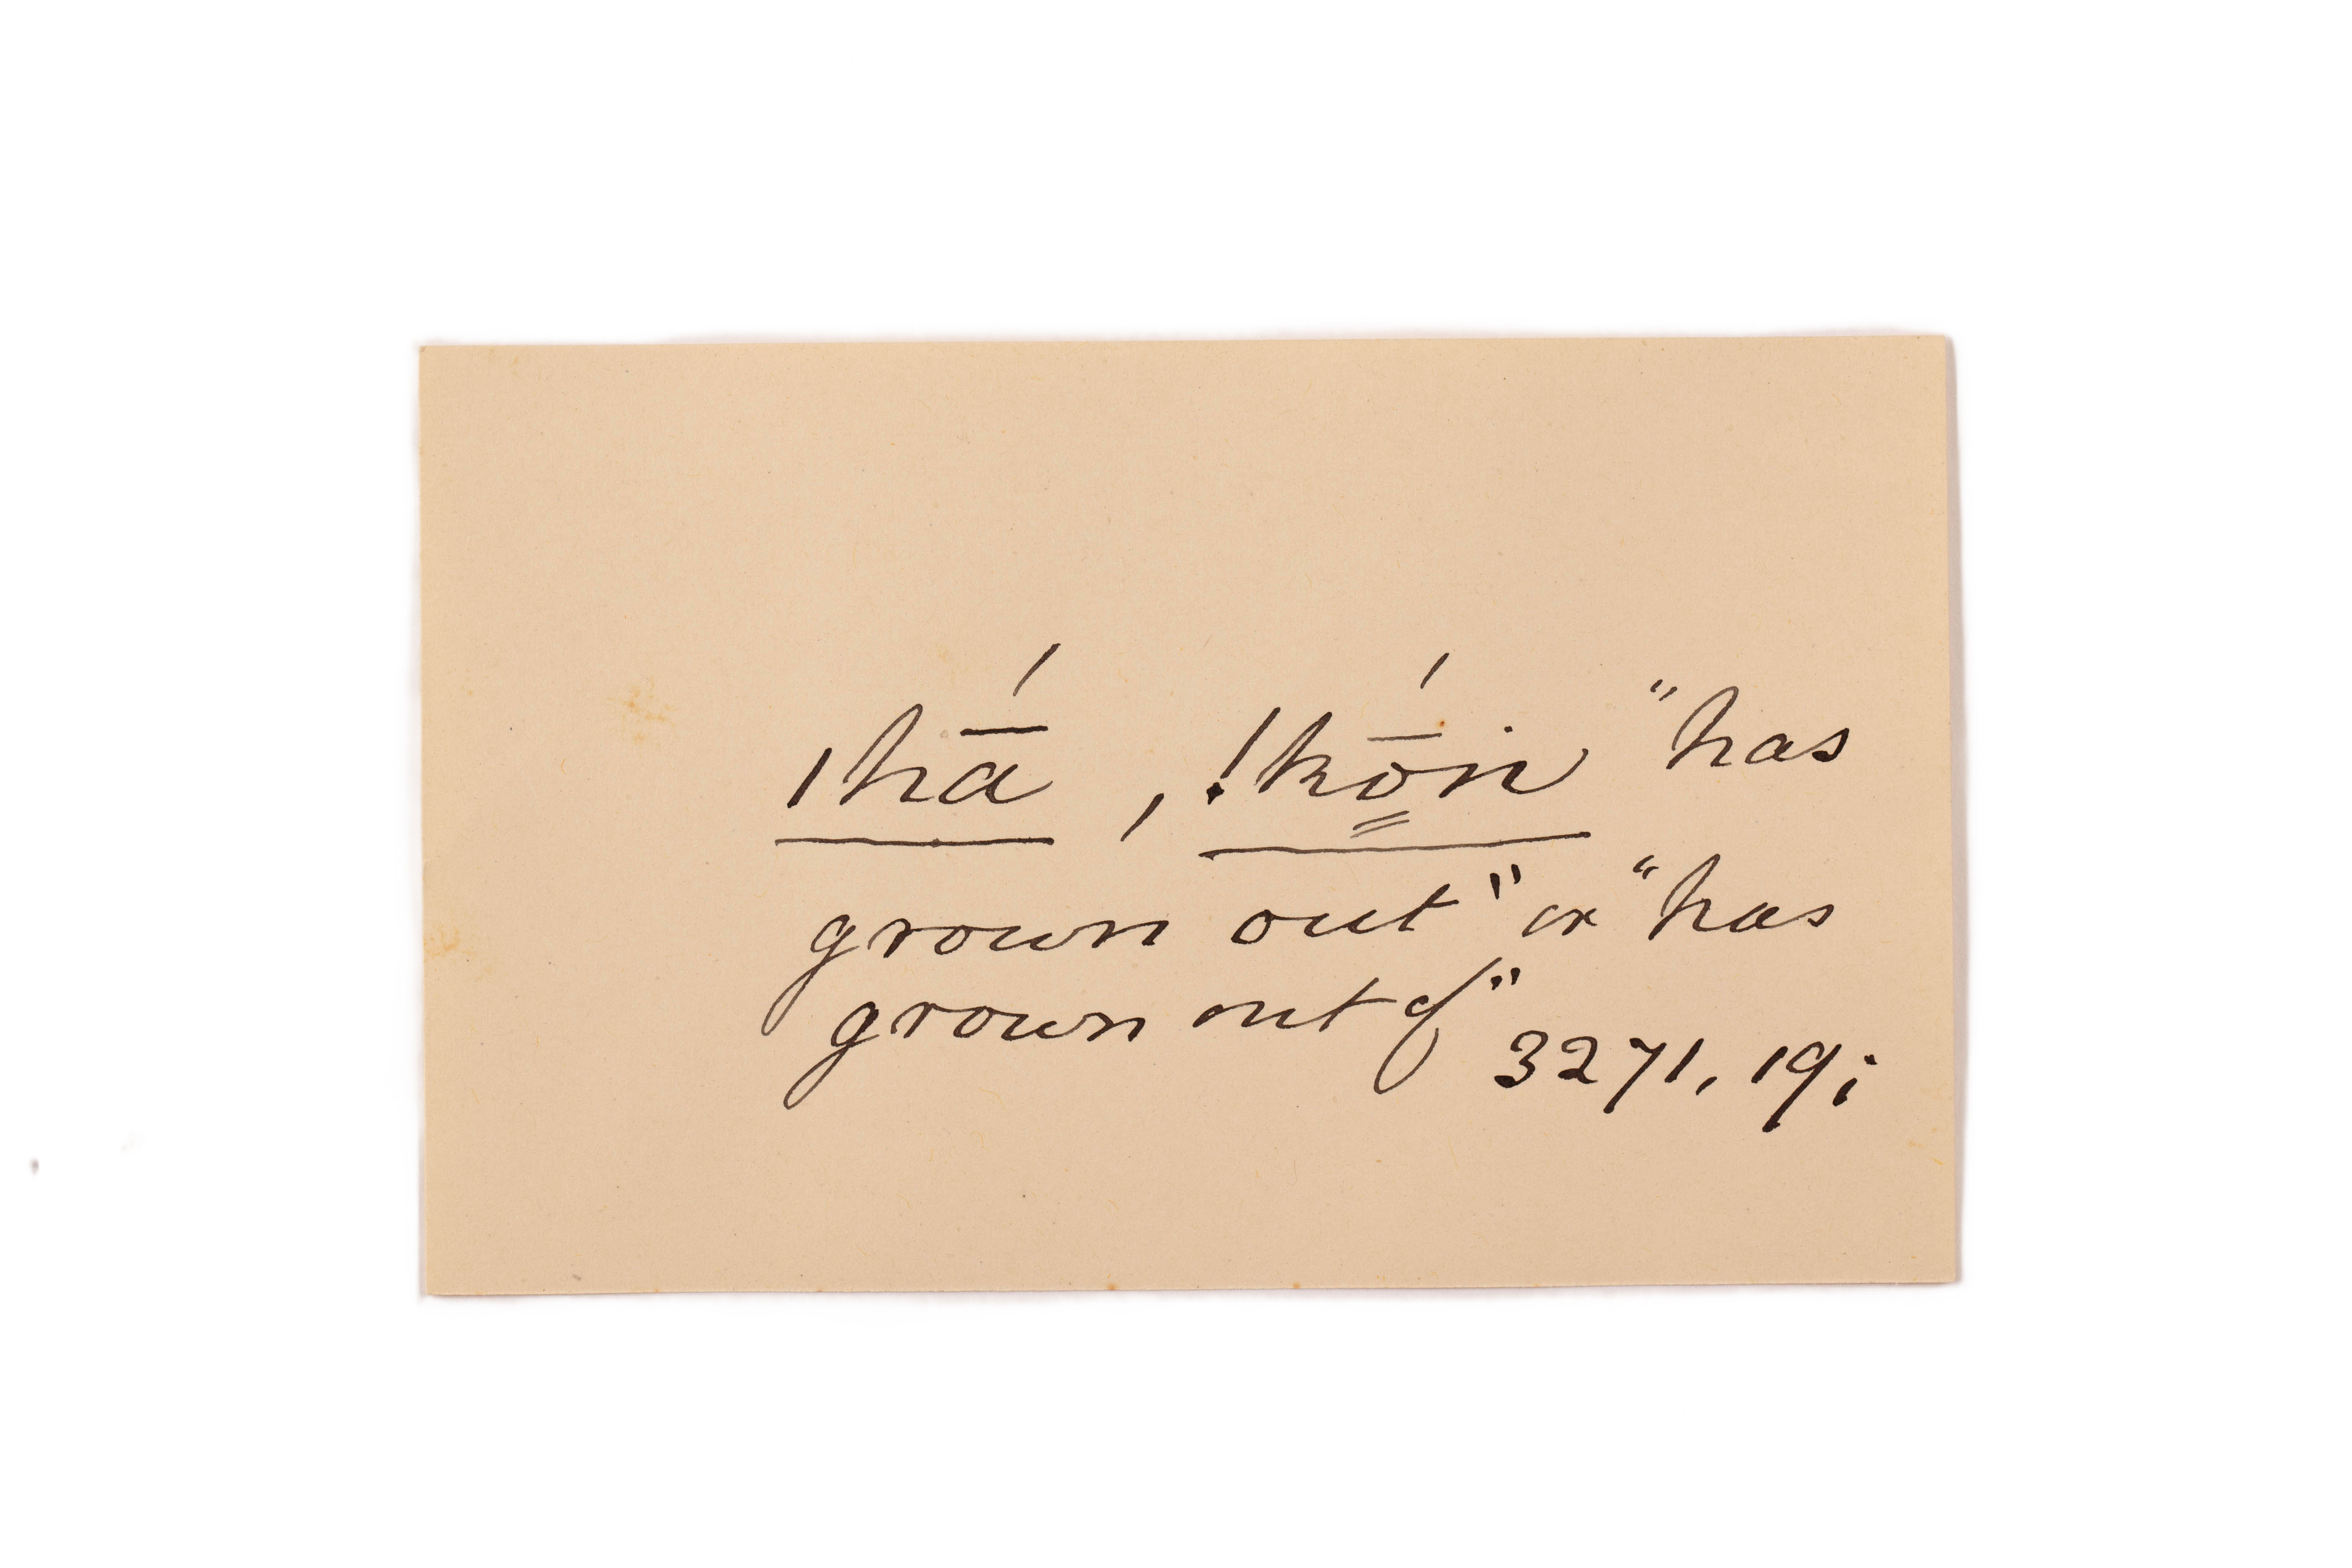 ǀhā́, !kṓ̳ṅ "has
grown out" or "has
grown out of"
3271, 19;